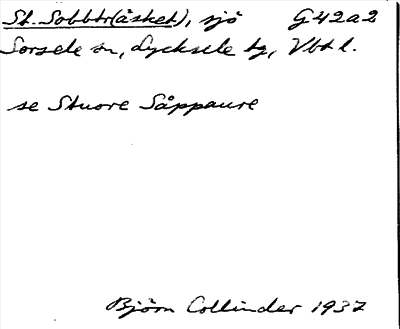 St. Sobbtr(äsket), sjö G42a2
Sorsele sn, Lycksele tg, Vbt l.
se Stuore Såppaure
Björn Collinder 1937